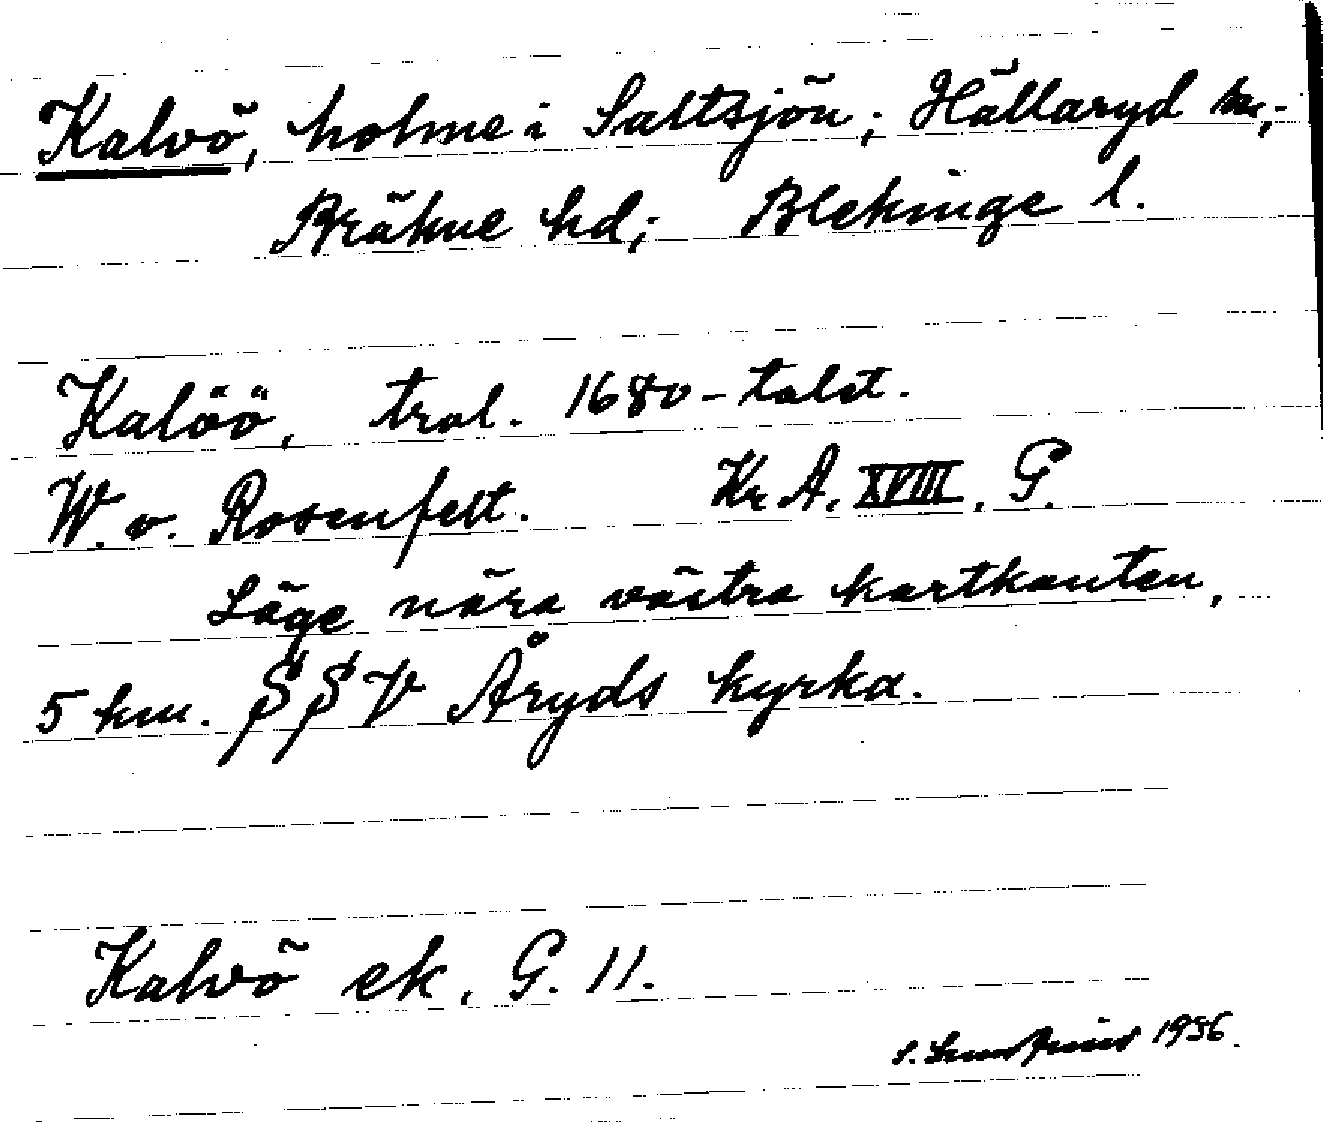 Kalvö, holme i Saltsjön; Hällaryd sn,
Bräkne hd; Blekinge l.
Kalöö, trol. 1680-talet.
W. v. Rosenfelt. Kr. A. XVIII. G.
Läge nära västra kartkanten,
5 km. SSV Åryds kyrka.
Kalvö ek. G. 11.
1956.